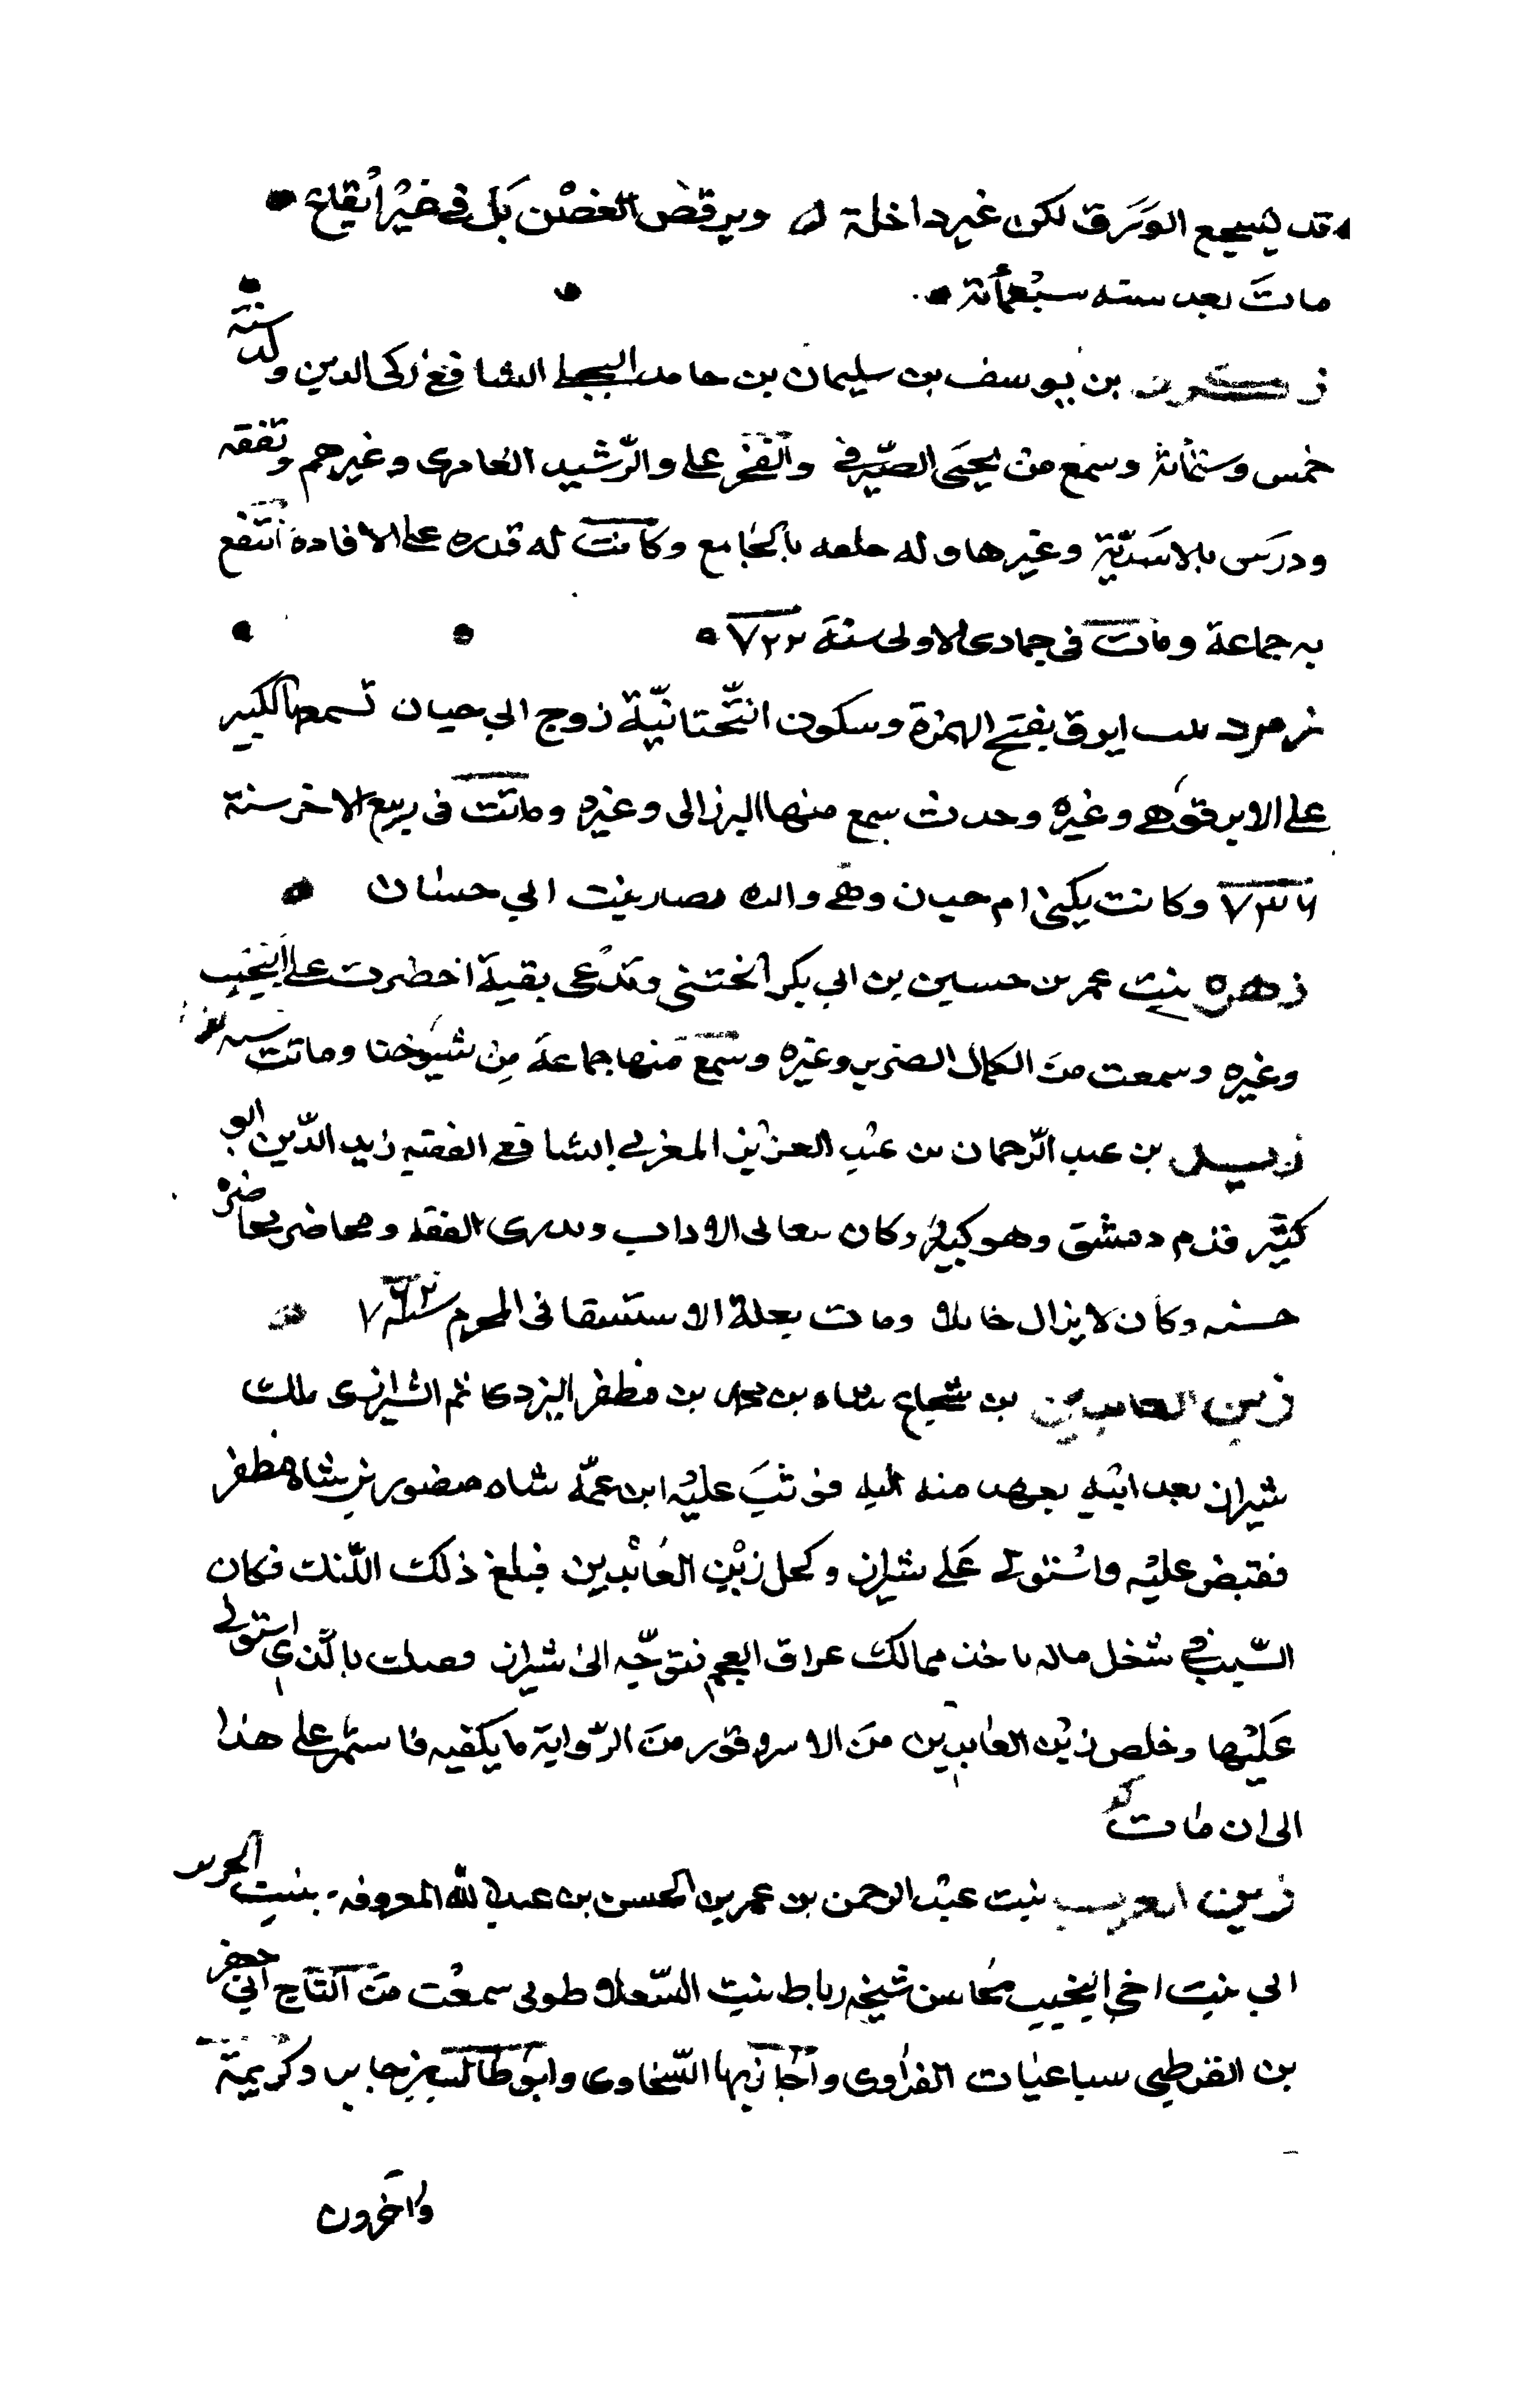 قد يسجع الورق لكن غير داخلة ويرقص الغصن بل في غير ايقاع
مات بعد سنه سبعمائة
بن يوسف بن سليمان بن حامد البجلي الشافعي زكي الدين ولد سنة
خمس وستمائة وسمع من يحيى الصيرفي والفخر علي والرشيد العامري وغيرهم وتفقه
ودرس بالاسدية وغيرها وله حلقه بالجامع وكانت له قدره على الافادة انتفع
به جماعة ومات في جمادى الاولى سنة ٧٢٢
زمرد بنت ايرق بفتح الهمزة وسكون التحتانية زوج ابي حيان تسمع الكبير
على الابرقوهي وغيره وحدثت سمع منها البرزالي وغيره وماتت في ربيع الاخر سنة
٧٣٦ وكانت يكنى ام حيان وهي والده نصار بنت ابي حسان
زهره بنت عمر بن حسين بن ابي بكر الختني وتدعى بقية احضرت على النجيب
وغيره وسمعت من الكمال الضرير وغيره وسمع منها جماعة من شيوخنا وماتت
بن عبد الرحمان بن عبد العزيز المغربي الشافعي الفقيه زيد الدين ابو
كثير قدم دمشق وهو كبير وكان يعاني الاداب ويدري الفقه ومحاضر محاضرة
حسنه وكان لا يزال خاملا ومات بعلة الاستسقا في المحرم سنة ٧٦٢
زين العابدين بن شجاع شاه بن محمد بن مظفر اليزدي ثم الشيرازي ملك
شيراز بعد ابيه بعهد منه اليه فوثب عليه ابن عمه شاه منصور بن شاه مظفر
فقبض عليه واستولى على شيراز وكحل زين العابدين فبلغ ذلك اللنك فكان
السبب في شغل ماله باخذ ممالك عراق العجم فتوجه الى شيراز بالذي استولى
عليها وخلص زين العابدين من الاسر وقرر من الرواية ما يكفيه فاستمر على هذا
الى ان مات
زين العرب بنت عبد الرحمن بن عمر بن الحسن بن عبد الله المعروفه بنت
ابي بنت اخي النجيب محاسن شيخه رباط بنت السعلا طولى سمعت من التاج ابي جعفر
بن القرطبي سباعيات الفراوي واجاز بها السخاوي وابو طالب بن جابر وكريمة
وآخرون